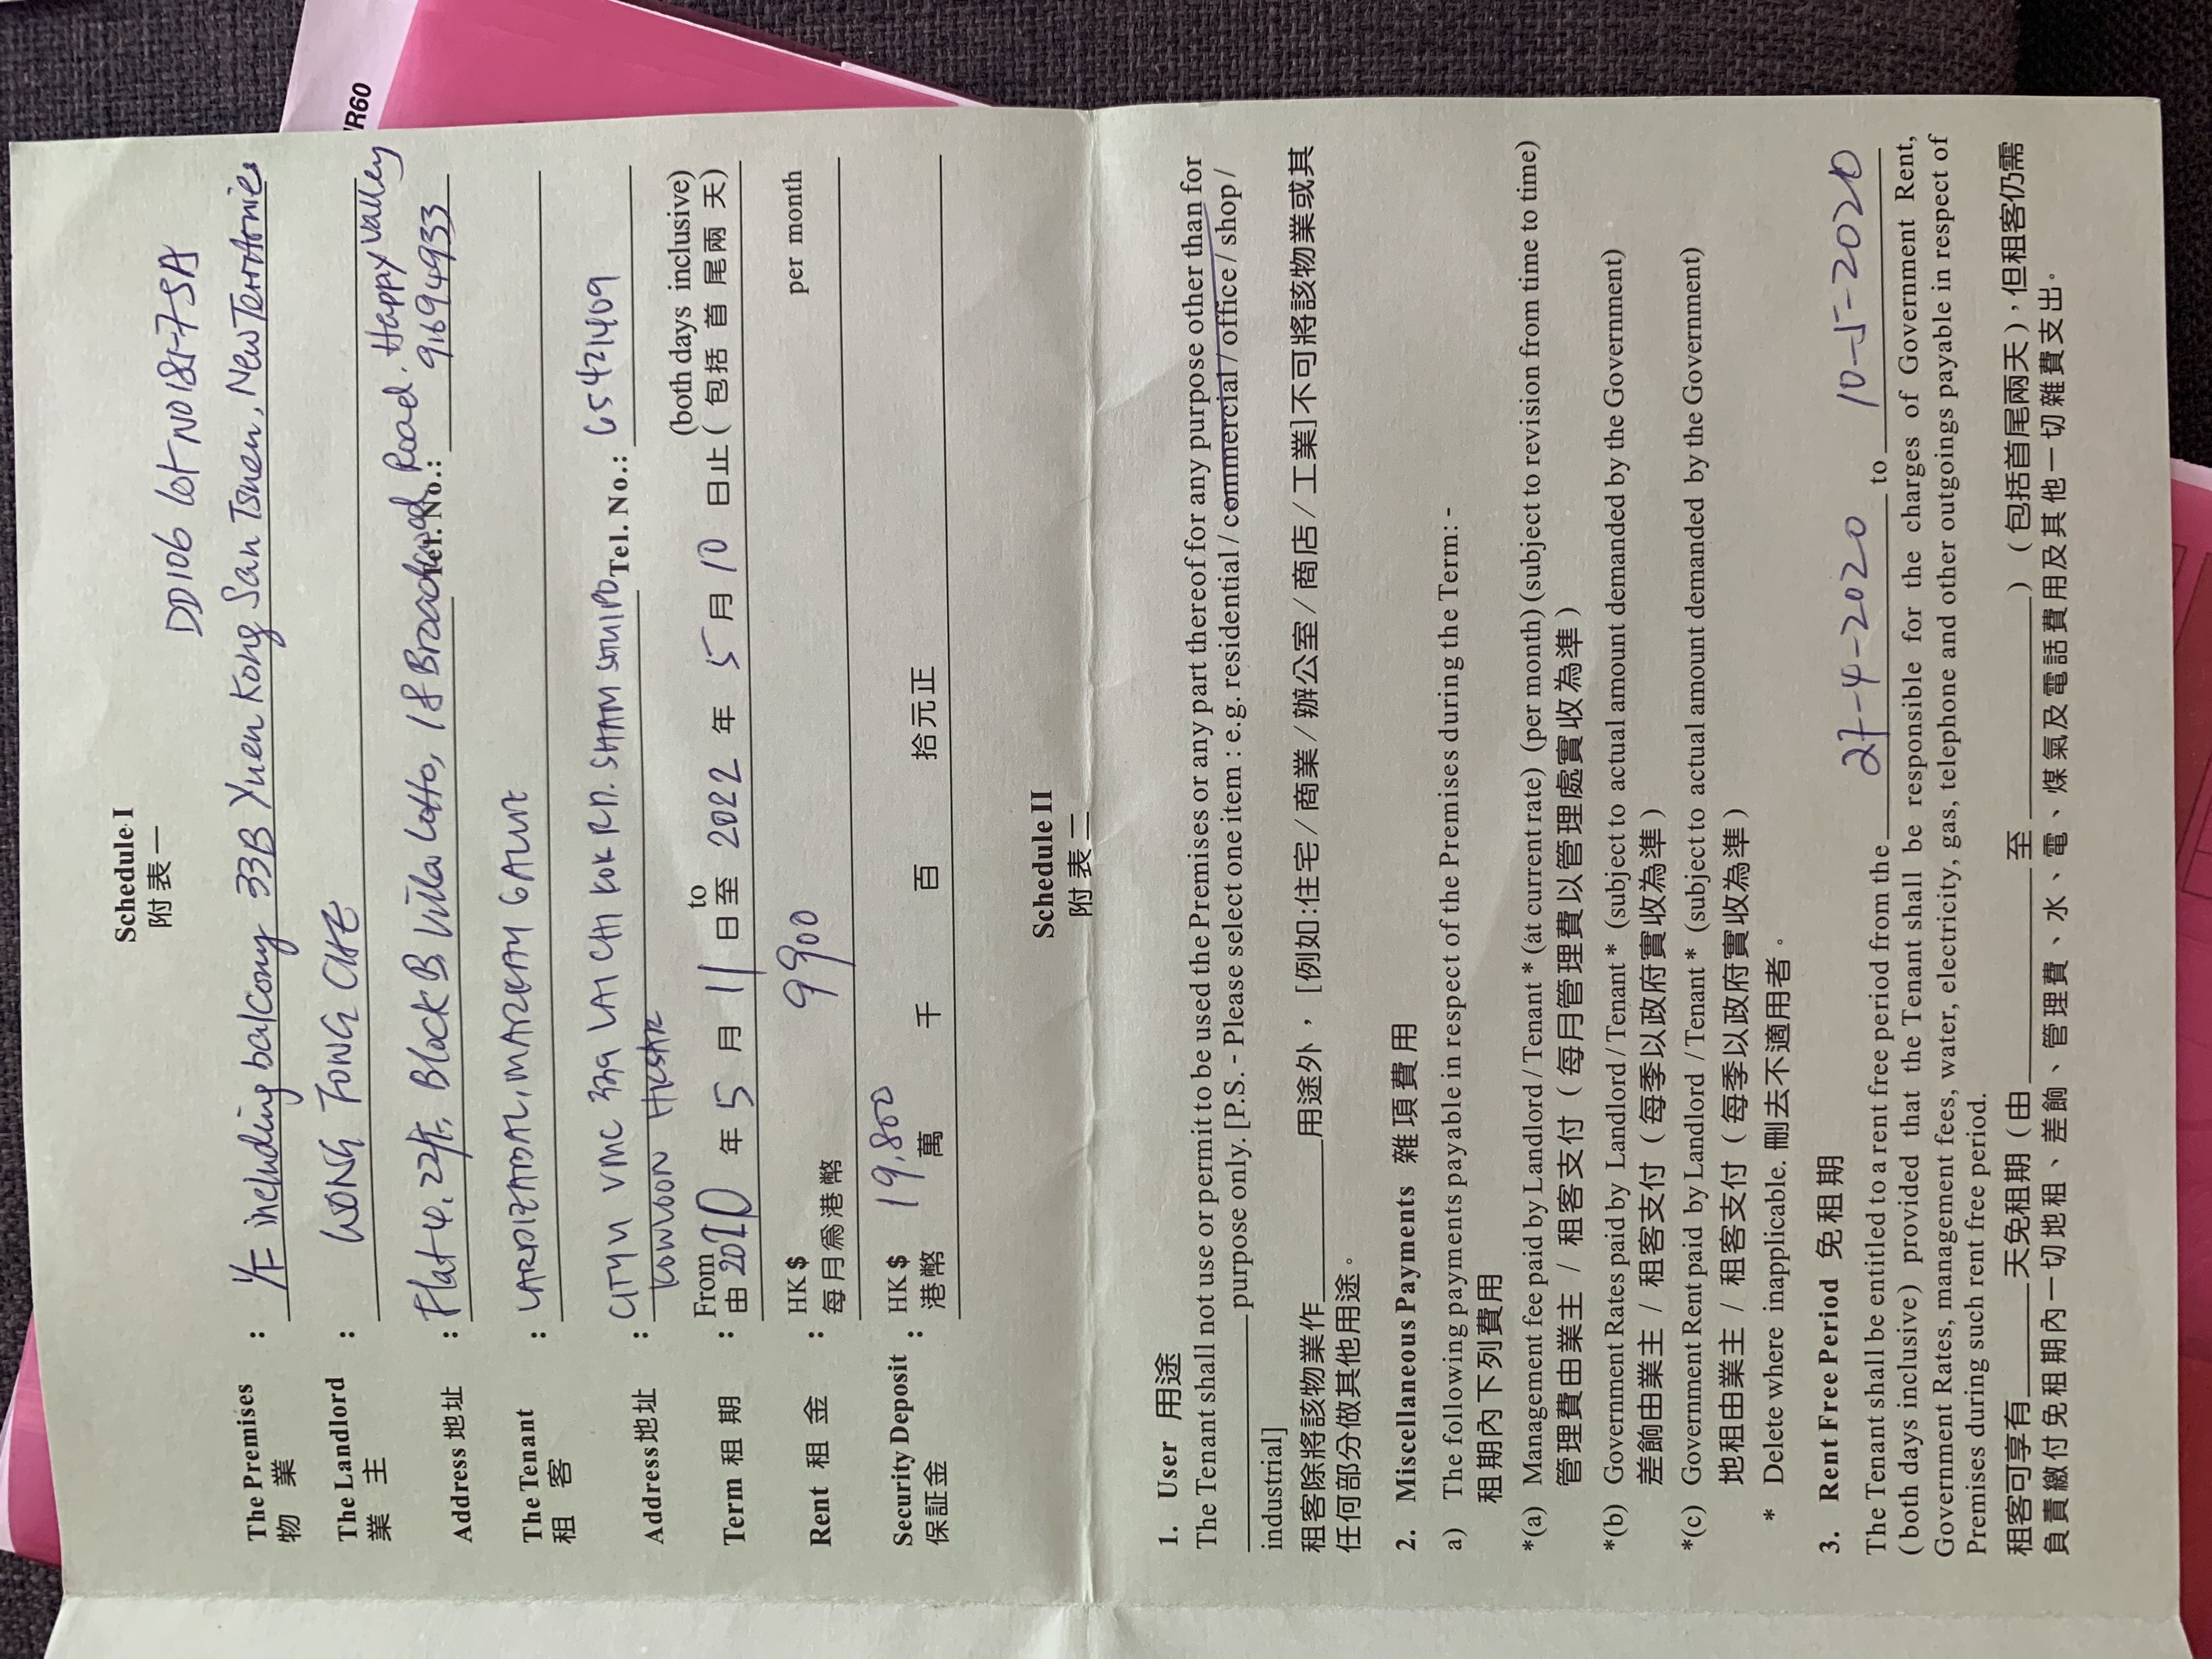 Schedule I
附表一
DD106 Lot No 185-7SA
The Premises : 1/F including balcony 33B Yuen Kong San Tsuen, New Territories
物業
The Landlord : WONG FONG CHE
業主
Address 地址 : Flat 4, 22/F, Block B Villa Lotto, 18 Broadwood Road. Happy Valley
Tel. No.: 91694933
The Tenant : LARDIZABAL, MARICAM GALUT
租客
Address 地址 : CITYU VMC 339 LAI CHI KOK RD. SHAM SHUI PO Tel. No.: 65421409
KOWLOON HKSAR
Term 租期 : From to (both days inclusive)
由 2020 年 5 月 11 日至 2022 年 5 月 10 日止 (包括首尾兩天)
Rent 租金 : HK$ 9900 per month
每月為港幣
Security Deposit : HK$ 19,800
保証金 港幣 萬 千 百 拾元正
Schedule II
附表二
1. User 用途
The Tenant shall not use or permit to be used the Premises or any part thereof for any purpose other than for
purpose only. [P.S. - Please select one item : e.g. residential / commercial / office / shop /
industrial]
租客除將該物業作 用途外，[例如:住宅/商業/辦公室/商店/工業]不可將該物業或其
任何部分做其他用途。
2. Miscellaneous Payments 雜項費用
a) The following payments payable in respect of the Premises during the Term: -
租期內下列費用
*(a) Management fee paid by Landlord / Tenant * (at current rate) (per month) (subject to revision from time to time)
管理費由業主 / 租客支付 (每月管理費以管理處實收為準)
*(b) Government Rates paid by Landlord / Tenant * (subject to actual amount demanded by the Government)
差餉由業主 / 租客支付 (每季以政府實收為準)
*(c) Government Rent paid by Landlord / Tenant * (subject to actual amount demanded by the Government)
地租由業主 / 租客支付 (每季以政府實收為準)
* Delete where inapplicable. 刪去不適用者。
3. Rent Free Period 免租期
The Tenant shall be entitled to a rent free period from the 27-4-2020 to 10-5-2020
(both days inclusive) provided that the Tenant shall be responsible for the charges of Government Rent,
Government Rates, management fees, water, electricity, gas, telephone and other outgoings payable in respect of
Premises during such rent free period.
租客可享有 天免租期 (由 至 ) (包括首尾兩天)，但租客仍需
負責繳付免租期內一切地租、差餉、管理費、水、電、煤氣及電話費用及其他一切雜費支出。
/R60